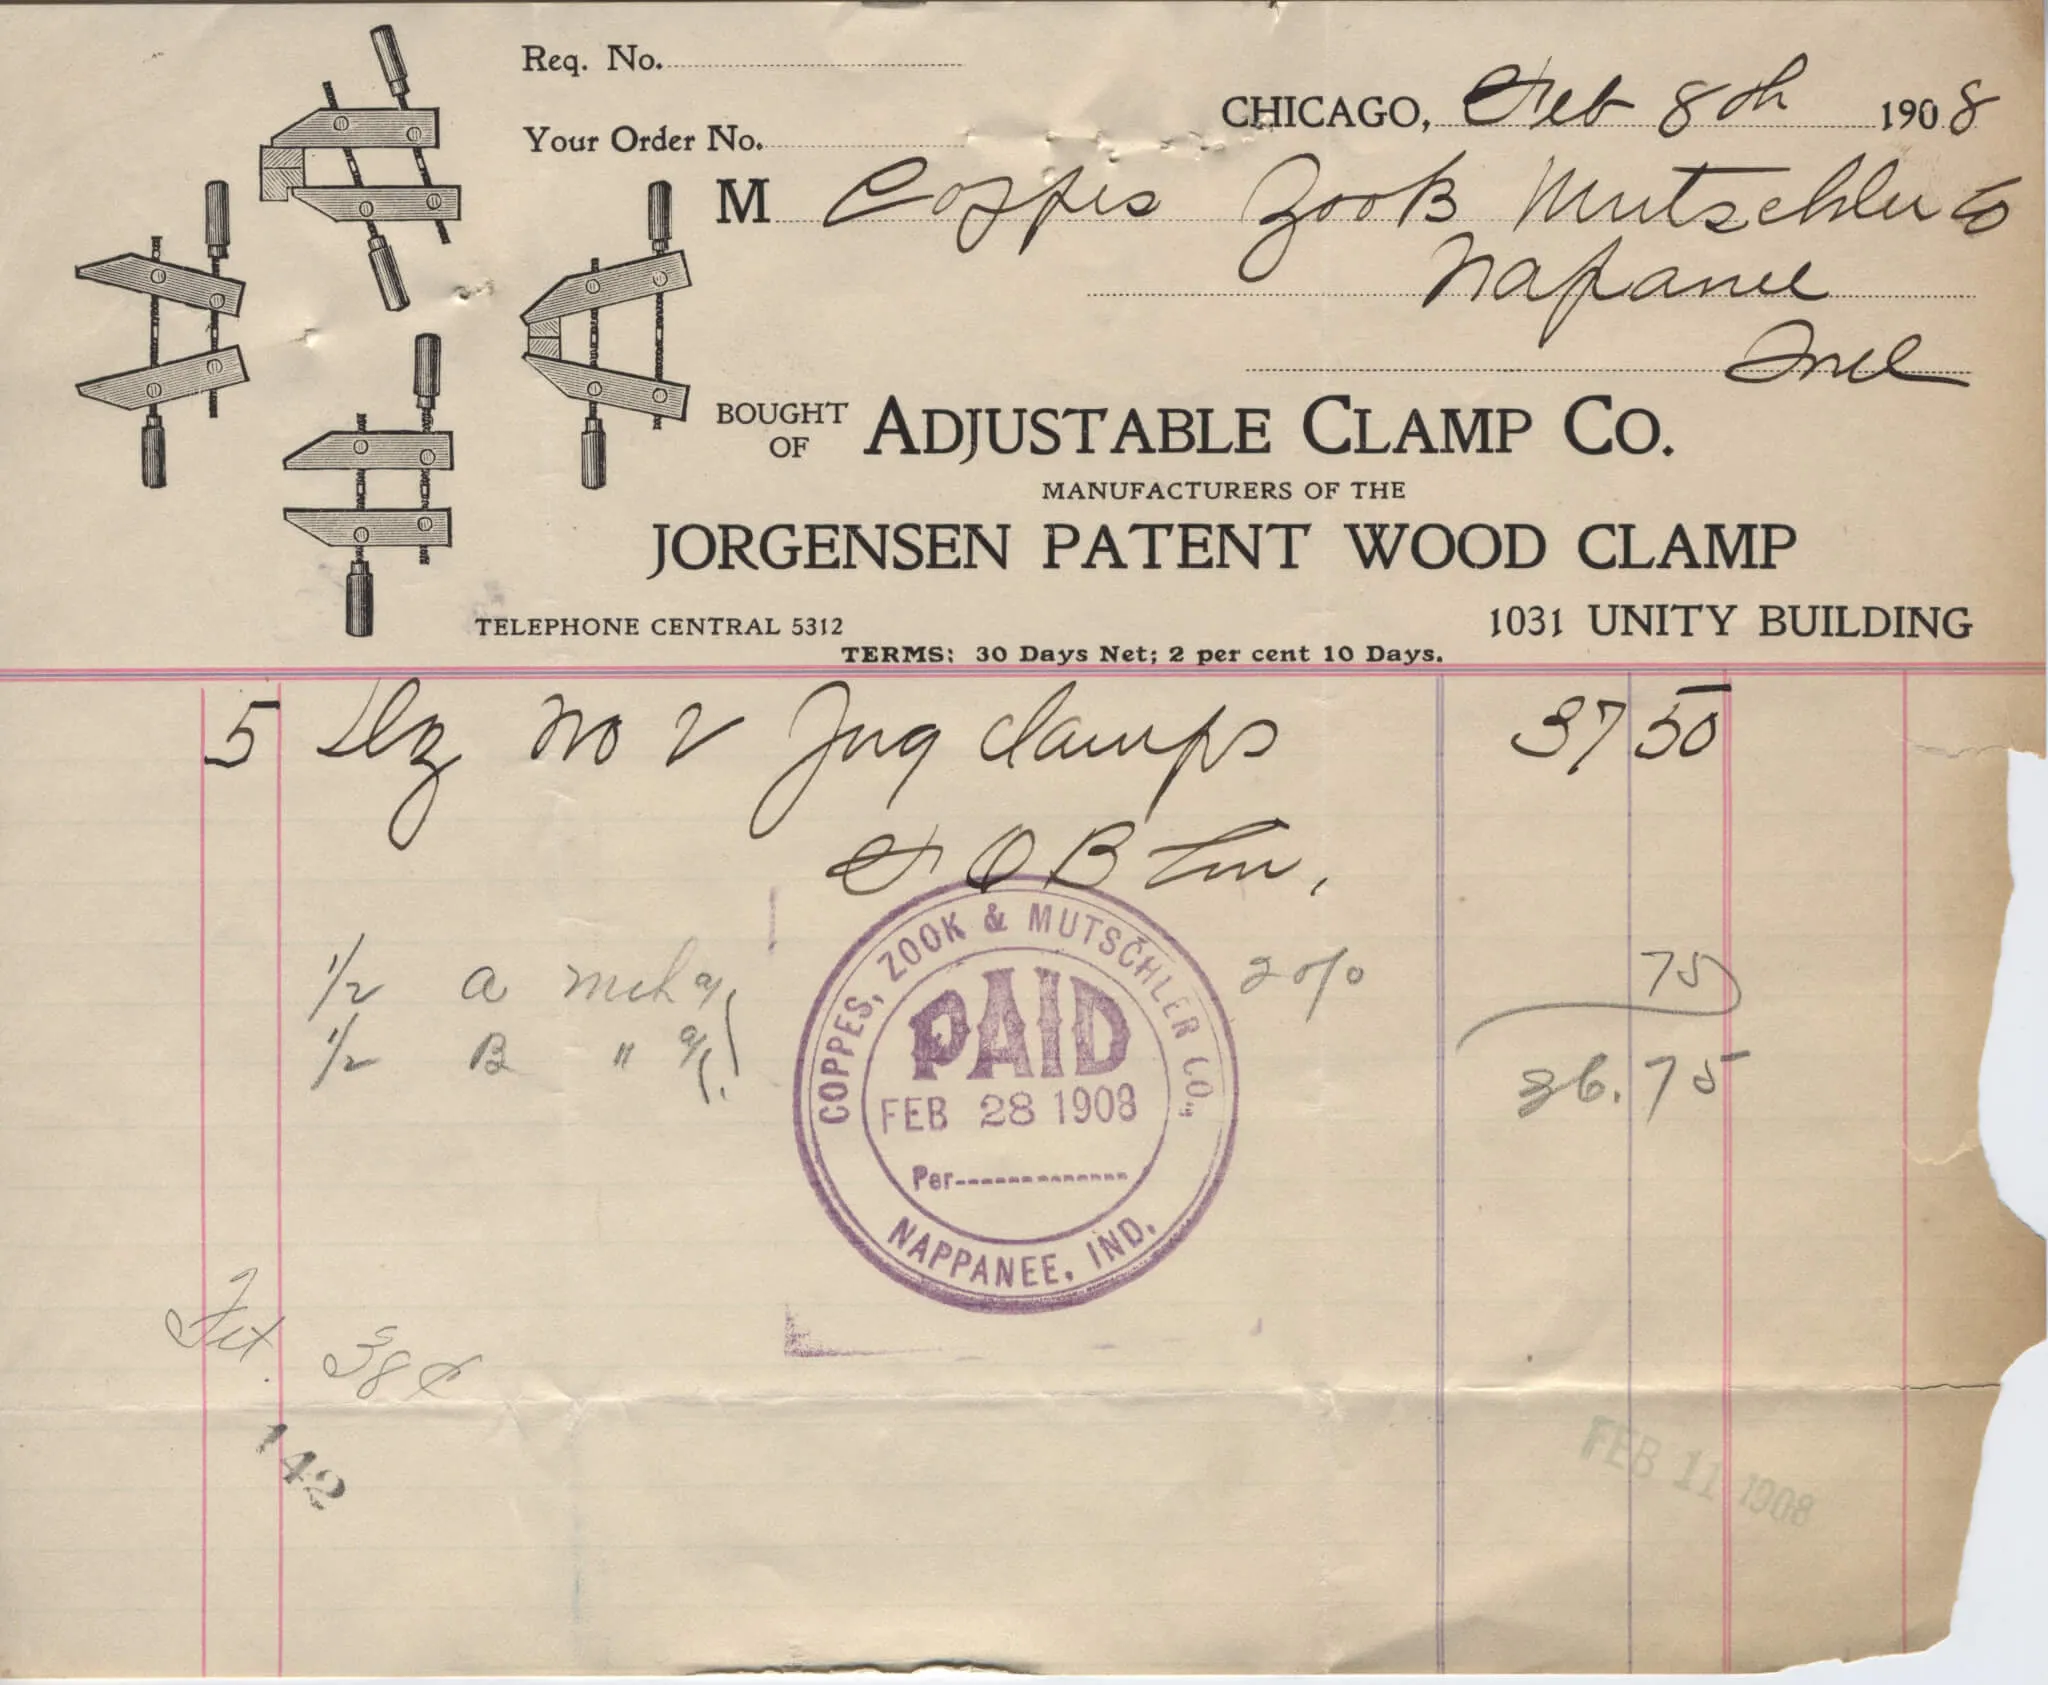 Req. No.
CHICAGO, Feb 8th 1908
Your Order No.
M Coppes Zook Mutschler Co
Napanee
Ind
BOUGHT OF ADJUSTABLE CLAMP CO.
MANUFACTURERS OF THE
JORGENSEN PATENT WOOD CLAMP
TELEPHONE CENTRAL 5312
1031 UNITY BUILDING
TERMS: 30 Days Net; 2 per cent 10 Days.
5 Dz No 2 Jug Clamps 37 50
F O B
1/2 a mch a/c 2% 75
1/2 B " a/c 36.75
COPPES, ZOOK & MUTSCHLER CO.,
PAID
FEB 28 1908
Per
NAPPANEE, IND.
Frt 38¢
142
FEB 11 1908